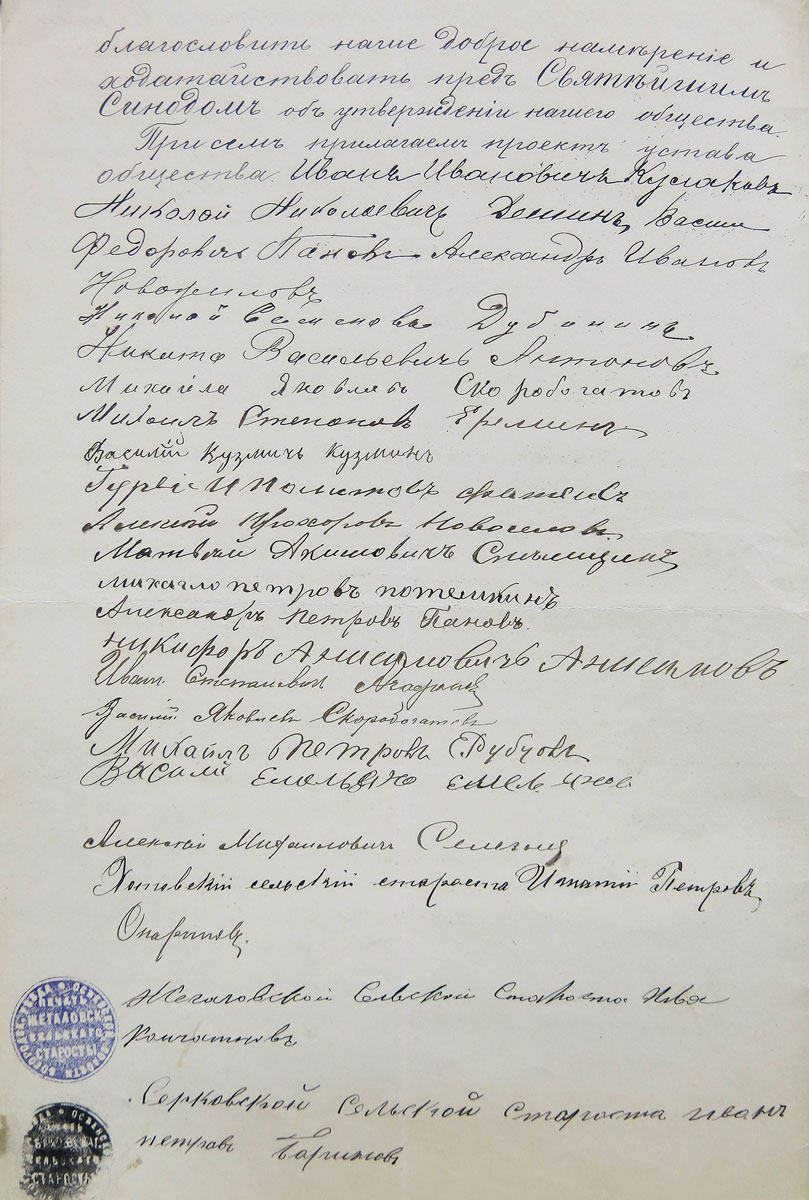 благословить наше доброе намѣреніе и
ходатайствовать предъ Святѣйшимъ
Синодомъ объ утвержденіи нашего общества.
При семъ прилагаемъ проектъ устава
общества. Иванъ Ивановичъ Кулаковъ
Николай Николаевичъ Деминъ, Васили
Федоровичъ Пановъ Александръ Ивановъ
Новожиловъ
Николай Семеновъ Дубининъ
Никита Васильевичъ Антоновъ
Михайла Яковлевъ Скоробогатовъ
Михаилъ Степановъ Ереминъ
Василій Кузмичъ Кузминъ
Гурей Иполитовъ
Алексей Прохоровъ Новоселовъ
Матвѣй Акимовичъ
михайло петровъ потемкинъ
Александръ Петровъ Пановъ.
никифоръ Анисимовичъ Анисимовъ
Иванъ Степановъ
Василій Яковлев Скоробогатовъ
Михайлъ Петровъ
Василий Емельяно емел янов
Алексей Михаилович
сельскій староста Игнатій Петровъ
Опаринъ.
Жегаловской Сельской Староста Илья
ПЕЧАТЬ ЖЕГАЛОВСКАГО СЕЛЬСКАГО СТАРОСТЫ
Серковской Сельской староста иванъ
петровъ
СЕЛЬСКАГО СТАРОСТЫ